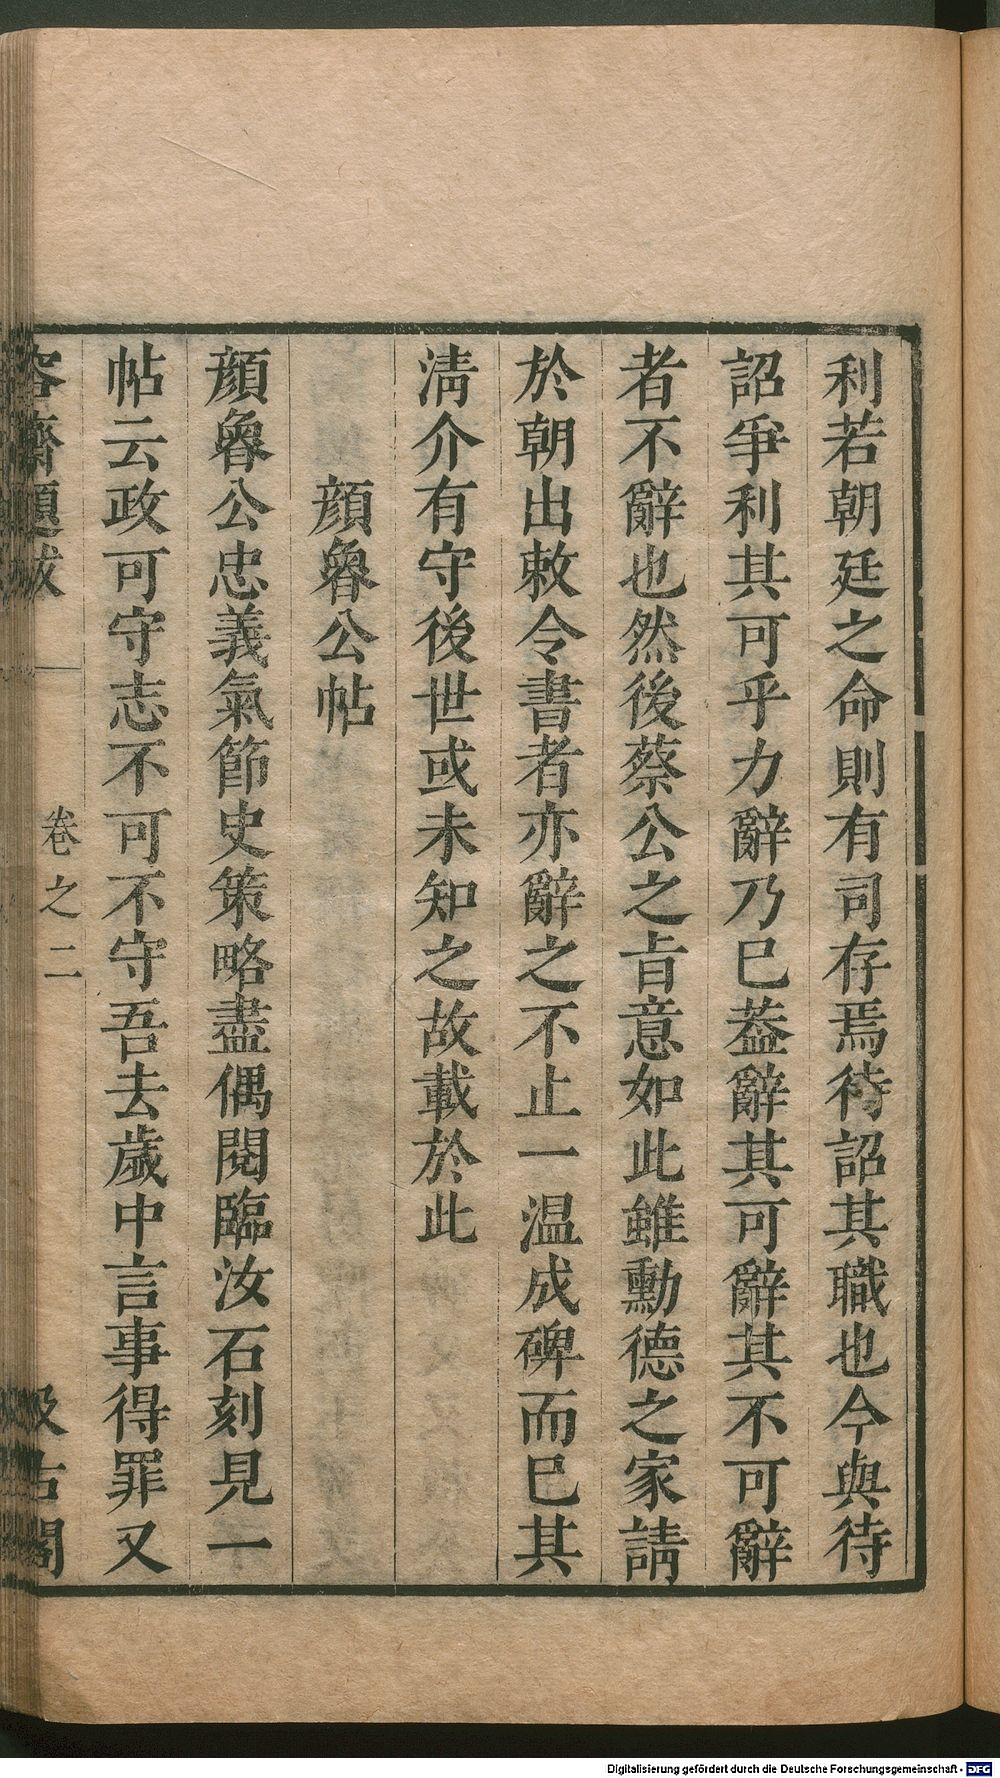 利若朝廷之命則有司存焉待詔其職也今與待
詔爭利其可乎力辭乃巳葢辭其可辭其不可辭
者不辭也然後蔡公之㫖意如此雖勳德之家請
於朝出敕令書者亦辭之不止一温成碑而巳其
淸介有守後世或未知之故載於此
顔魯公帖
顔魯公忠義氣節史策略盡偶閱臨汝石刻見一
帖云政可守志不可不守吾去歲中言事得罪又
容齋題跋
卷之二
汲古閣
Digitalisierung gefördert durch die Deutsche Forschungsgemeinschaft - DFG